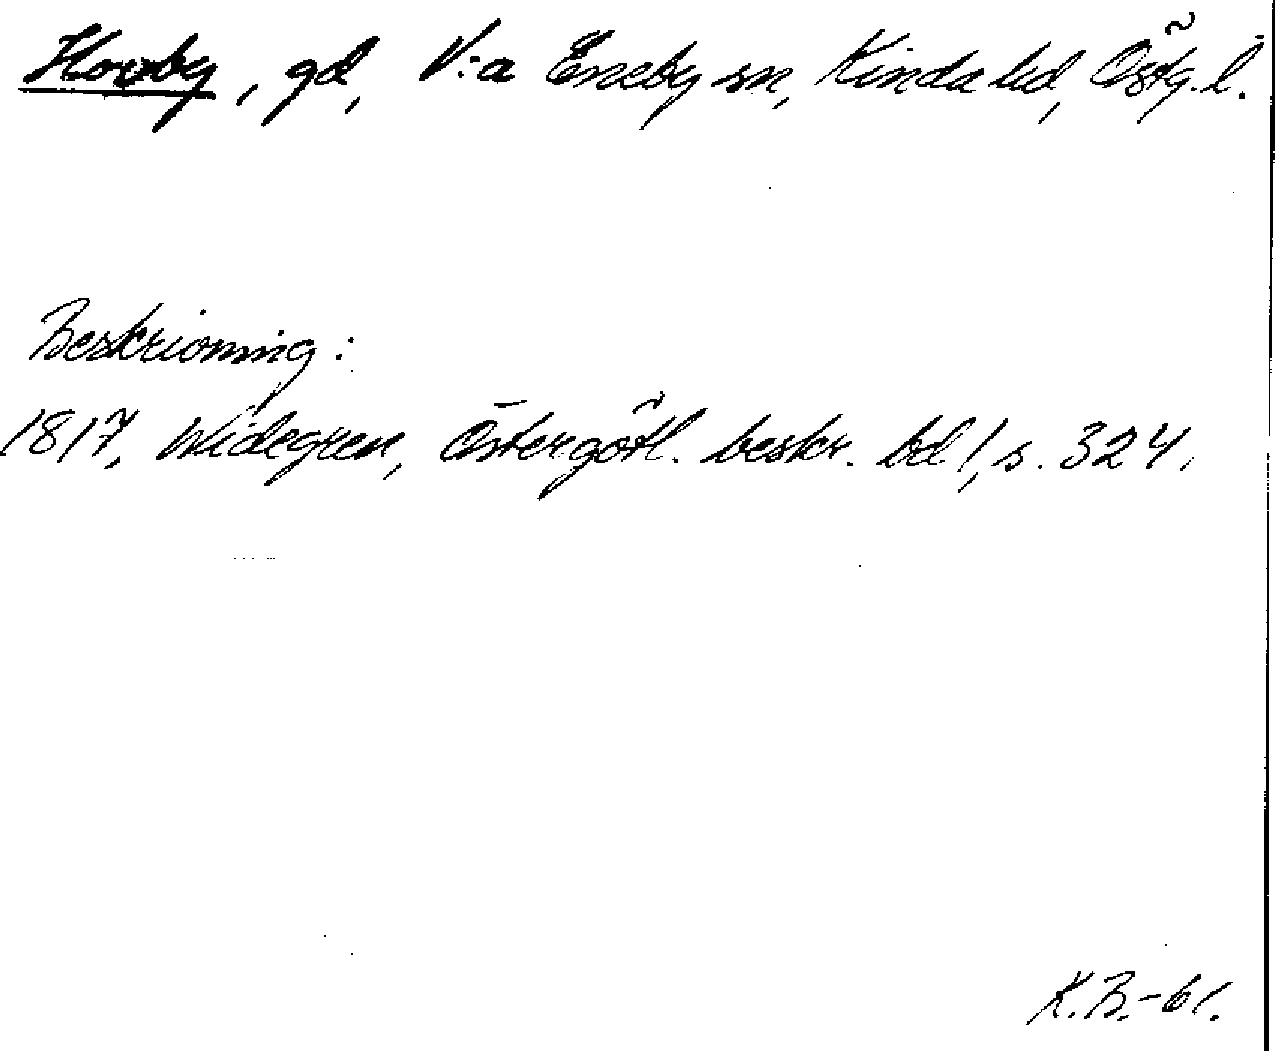 Hovby, gd, V:a Eneby sn, Kinda hd, Östg. l.
Beskrivning:
1817, Widegren, Östergötl. beskr. bd 1, s. 324.
K.B.-61.